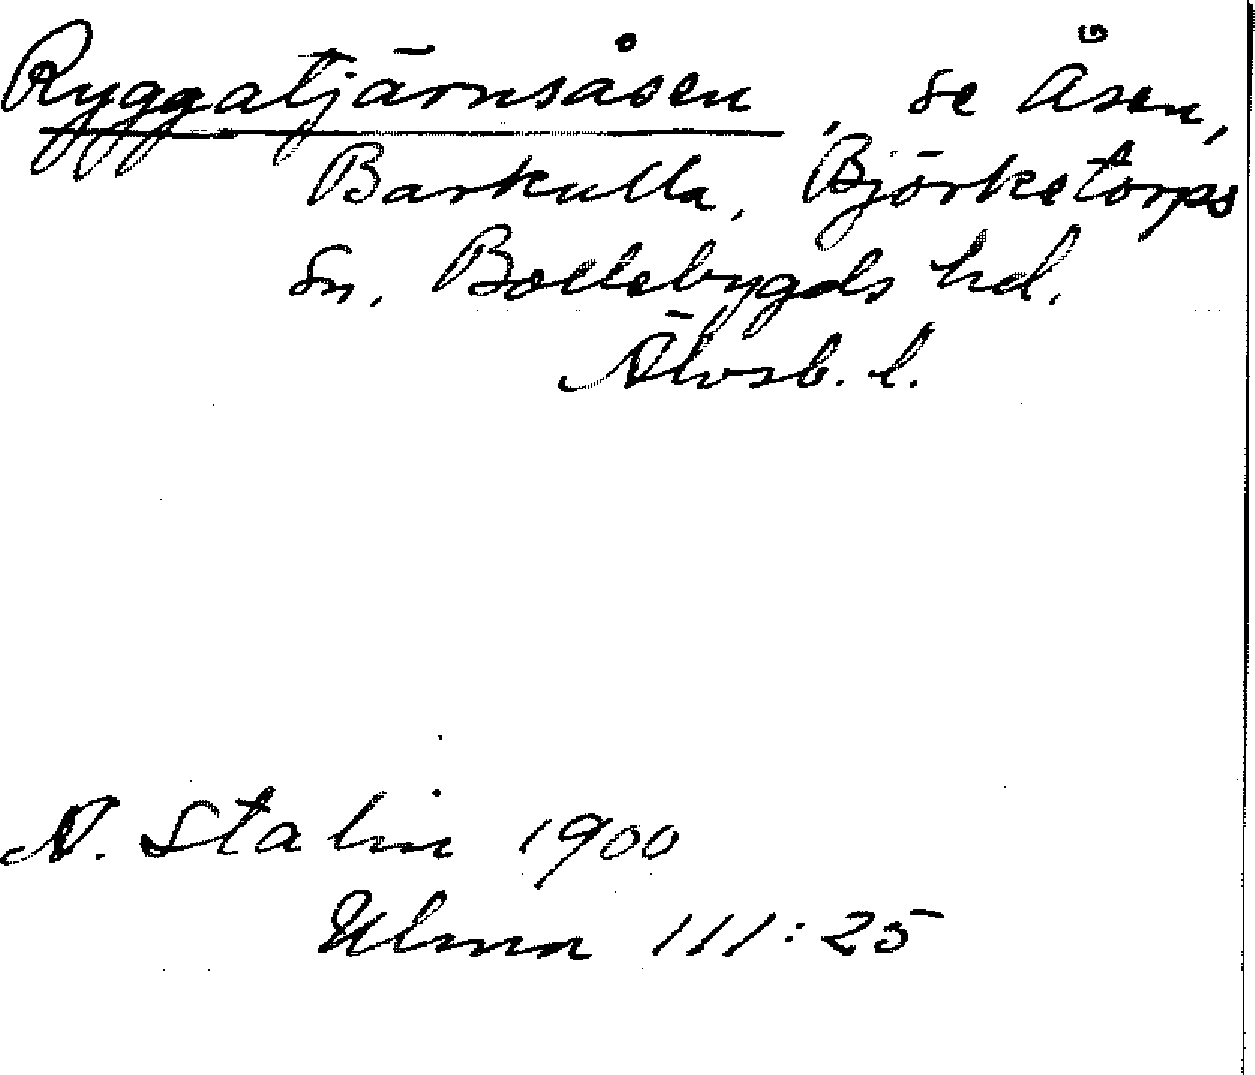 Ryggatjärnsåsen, se Åsen,
Barkulla, Björketorps
sn, Bollebygds hd.
Älvsb. l.
N. Stalin 1900
Ulma 111:25